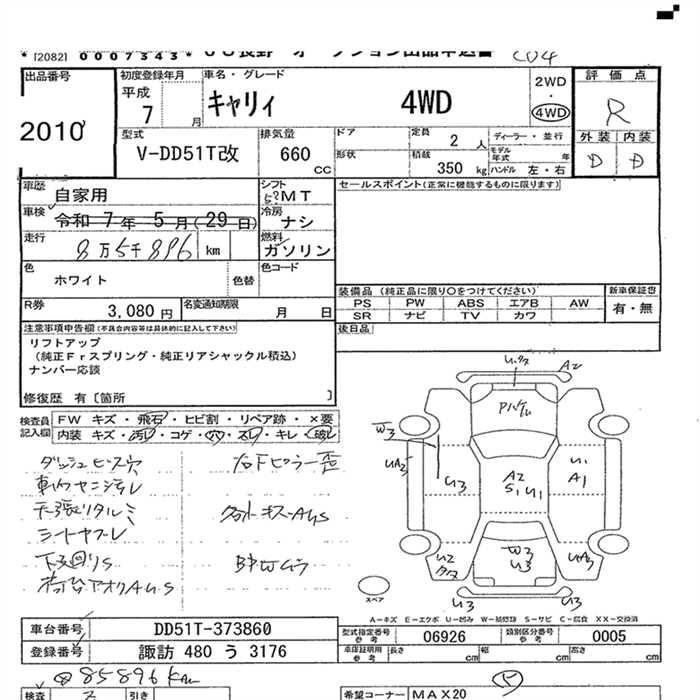 [2082] 0007343
出品番号
2010
初度登録年月
平成
7 月
車名・グレード
キャリィ 4WD
2WD
・
4WD
評価点
R
外装 内装
D D
型式
V-DD51T改
排気量
660 CC
ドア
形状
定員
2 人
積載
350 kg
ディーラー・並行
モデル年式 年
ハンドル 左・右
車歴
自家用
シフト
MT
車検
令和 7年 5月(29日)
冷房
ナシ
走行
8万5千896 km
燃料
ガソリン
色
ホワイト
色替
色コード
R券
3,080円
名変通知期限
月 日
セールスポイント(正常に機能するものに限ります)
装備品(純正品に限り○をつけてください)
PS PW ABS エアB AW
SR ナビ TV カワ
新車保証書
有・無
後日品
注意事項申告欄(不具合内容等は具体的に記入して下さい)
リフトアップ
(純正Frスプリング・純正リアシャックル積込)
ナンバー応談
修復歴 有〔箇所 〕
検査員記入欄
FW キズ・飛石・ヒビ割・リペア跡・×要
内装 キズ・汚レ・コゲ・穴・スレ・キレ・破レ
ダッシュビス穴
車内ヤニ汚レ
天張リタルミ
シートヤブレ
下回りS
荷台アオリAUS
右下ピラー歪
外キズAUS
A2
W3
UA3
U3
A2
S1 U1
U1
A1
U2
W3
U3
UA3
U3
U3
スペア
A-キズ E-エクボ U-凹み W-補修跡 S-サビ C-腐食 XX-交換済
車台番号
DD51T-373860
登録番号
諏訪 480 う 3176
型式指定番号
参考
06926
類別区分番号
参考
0005
車庫証明用
参考
長さ cm
幅 cm
高さ cm
85896km
検査
引き
希望コーナー
MAX20